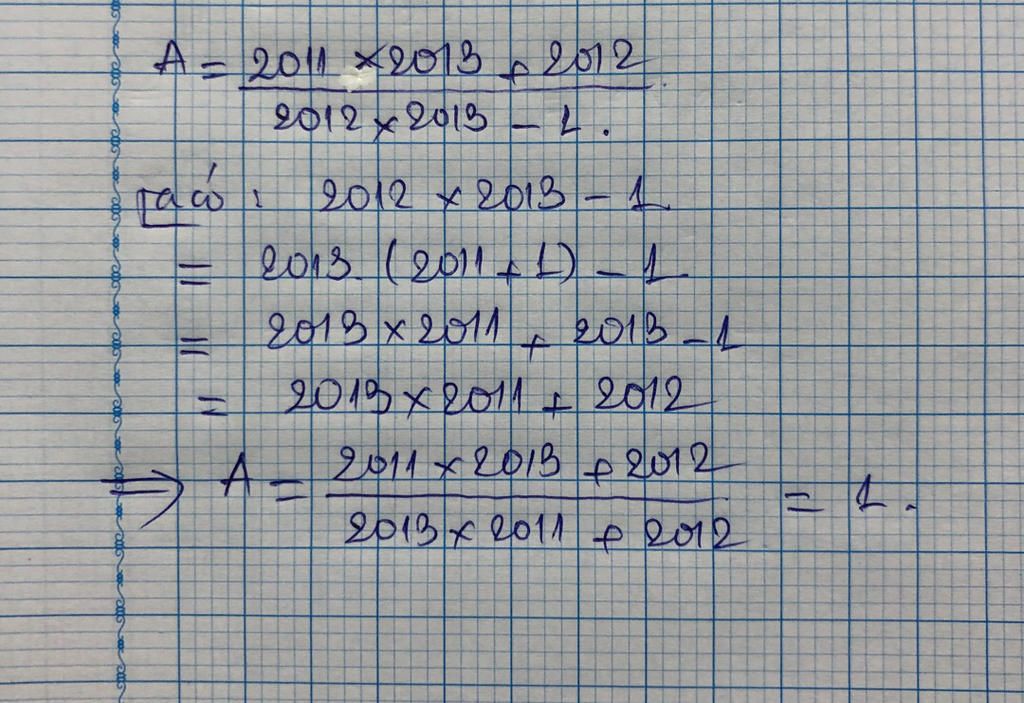 A = 2011 × 2013 + 2012
2012 × 2013 - 1.
Ta có: 2012 × 2013 - 1
= 2013. (2011 + 1) - 1
= 2013 × 2011 + 2013 - 1
= 2013 × 2011 + 2012
⇒ A = 2011 × 2013 + 2012 = 1.
2013 × 2011 + 2012